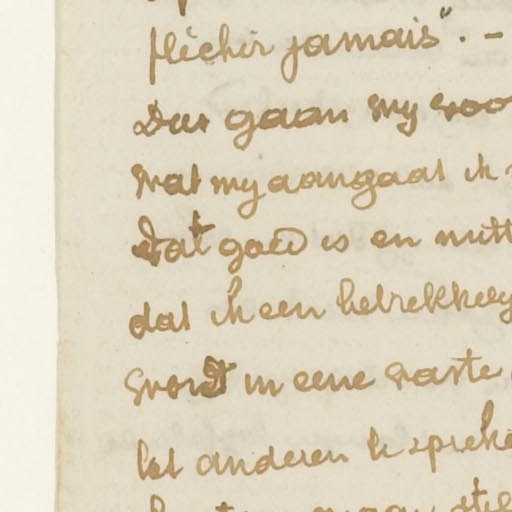 fléchir jamais". –
Dus gaan wy voo
Wat my aangaat ik
dat goed is en nutt
dat ik een betrekkely
word in eene vaste
tot anderen te spreke